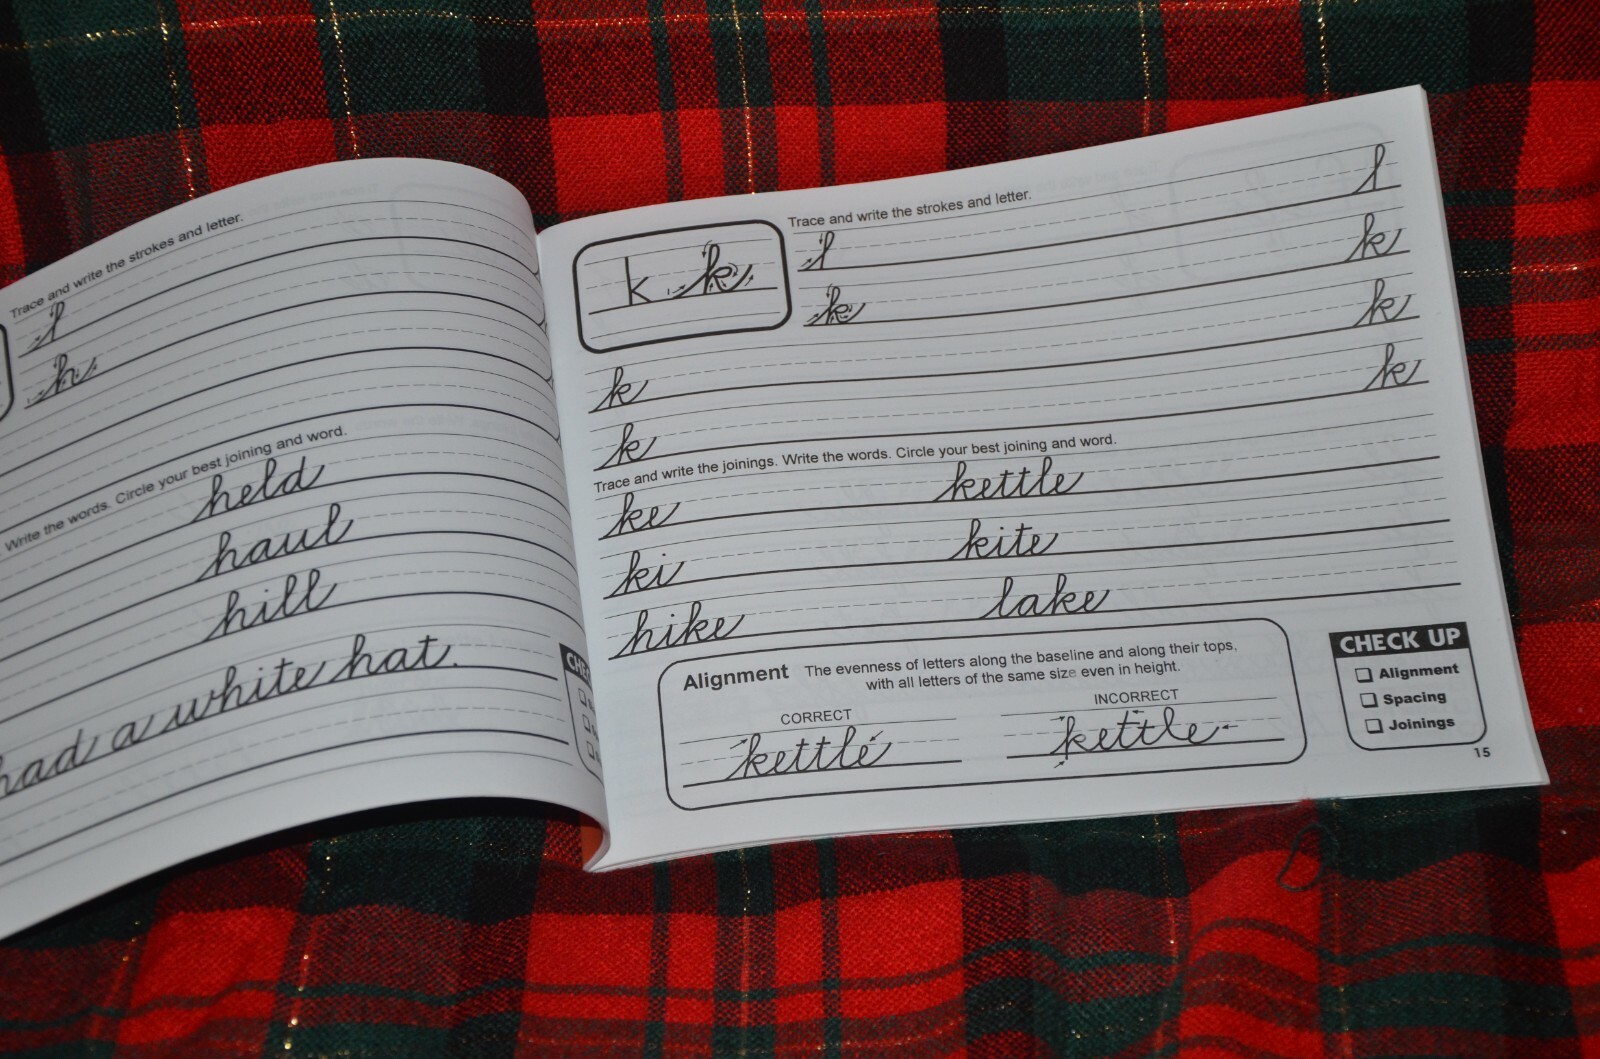 Trace and write the strokes and letter.
l
h
Write the words. Circle your best joining and word.
held
haul
hill
had a white hat.
k k
Trace and write the strokes and letter.
l l
k k
k k
k k
Trace and write the joinings. Write the words. Circle your best joining and word.
ke kettle
ki kite
hike lake
Alignment The evenness of letters along the baseline and along their tops,
with all letters of the same size even in height.
CORRECT INCORRECT
kettle kettle
CHECK UP
Alignment
Spacing
Joinings
15